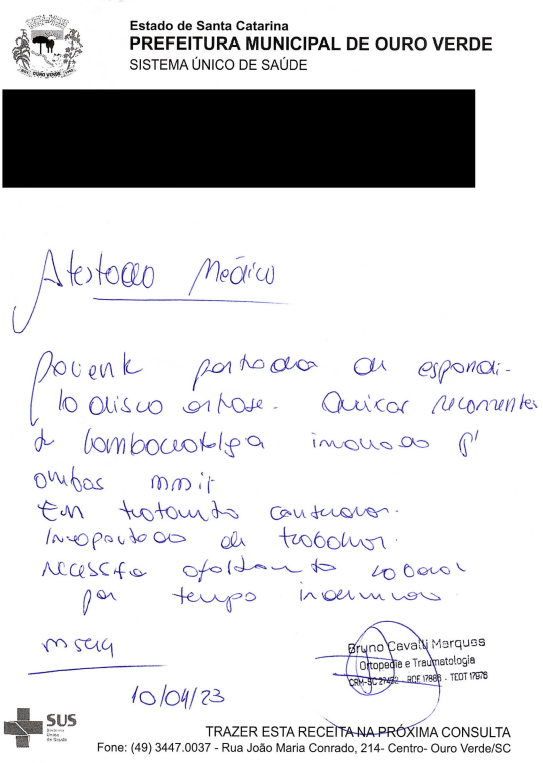 Estado de Santa Catarina
PREFEITURA MUNICIPAL DE OURO VERDE
SISTEMA ÚNICO DE SAÚDE
OURO VERDE
Atestado Médico
Paciente portadora de espondi-
lodiscoartrose. Queixas recorrentes
de lombociatalgia irradiado p/
ambas mmii
Em tratamento conservador.
Incapacitado de trabalhar.
necessita afastamento laboral
por tempo indeterminado
M5
10/04/23
Bruno Cavalli Marques
Ortopedia e Traumatologia
CRM-SC 27422 - RQE 17888 - TEOT 17978
SUS
Sistema
Único
de Saúde
TRAZER ESTA RECEITA NA PRÓXIMA CONSULTA
Fone: (49) 3447.0037 - Rua João Maria Conrado, 214- Centro- Ouro Verde/SC